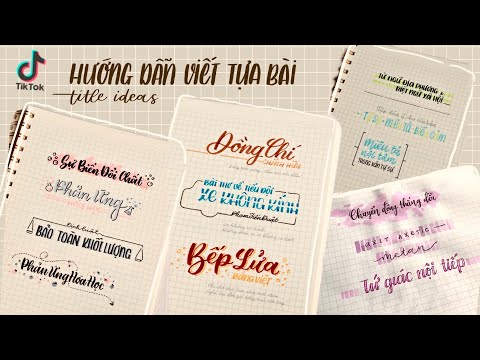 TikTok
HƯỚNG DẪN VIẾT TỰA BÀI
title ideas
Sự Biến Đổi Chất
Phản Ứng
Định luật
BẢO TOÀN KHỐI LƯỢNG
Phản Ứng Hóa Học
ĐỒNG CHÍ
CHÍNH HỮU
BÀI THƠ VỀ TIỂU ĐỘI
XE KHÔNG KÍNH
Phạm Tiến Duật
Bếp Lửa
BẰNG VIỆT
TỪ NGỮ ĐỊA PHƯƠNG
BIỆT NGỮ XÃ HỘI
Miêu tả
nội tâm
TRONG VĂN TỰ SỰ
Chuyển động thẳng đều
metan
Tứ giác nội tiếp